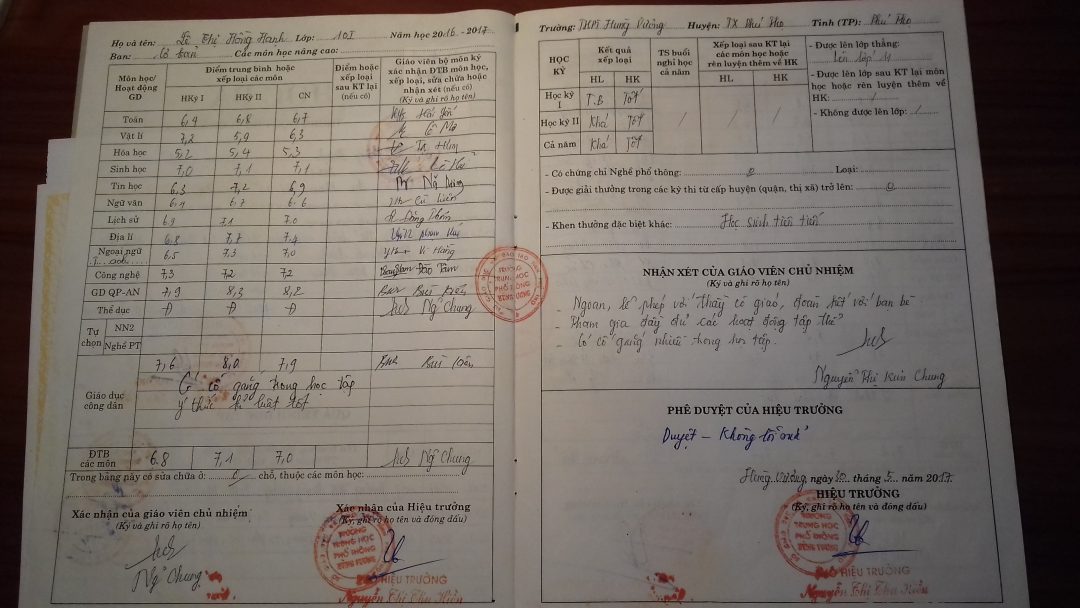 Họ và tên: Lê Thị Hồng Hạnh Lớp: 10I Năm học 2016 - 2017
Ban: Cơ bản Các môn học nâng cao:
Môn học/ Hoạt động GD
Điểm trung bình hoặc xếp loại các môn
HKỳ I HKỳ II CN
Điểm hoặc xếp loại sau KT lại (nếu có)
Giáo viên bộ môn ký xác nhận ĐTB môn học, sửa chữa hoặc nhận xét (nếu có)
(Ký và ghi rõ họ tên)
Toán 6,9 6,8 6,7 Hải Yến
Vật lí 7,2 5,9 6,3
Hóa học 5,2 5,4 5,3
Sinh học 7,0 7,1 7,1
Tin học 6,3 7,2 6,9
Ngữ văn 6,1 6,7 6.6
Lịch sử 6,9 7,1 7,0
Địa lí 6,8 7,7 7,4
Ngoại ngữ 6,5 7,3 7,0 Vi Hằng
Công nghệ 7,3 7,2 7,2 Đào Tâm
GD QP-AN 7,9 8,3 8,2 Bùi
Thể dục Đ Đ Đ Ng Chung
Tự chọn NN2
Nghề PT
Giáo dục công dân 7,6 8,0 7,9 Bùi
Có cố gắng trong học tập
ý thức kỉ luật tốt
ĐTB các môn 6.8 7,1 7,0 Ng Chung
Trong bảng này có sửa chữa ở: 0 chỗ, thuộc các môn học:
Xác nhận của giáo viên chủ nhiệm
(Ký và ghi rõ họ tên)
Ng Chung
Xác nhận của Hiệu trưởng
(Ký, ghi rõ họ tên và đóng dấu)
TRƯỜNG TRUNG HỌC PHỔ THÔNG HÙNG VƯƠNG
PHÓ HIỆU TRƯỞNG
Nguyễn Thị Thu Hiền
Trường: THPT Hùng Vương Huyện: TX Phú Thọ Tỉnh (TP): Phú Thọ
HỌC KỲ
Kết quả xếp loại
HL HK
TS buổi nghỉ học cả năm
Xếp loại sau KT lại các môn học hoặc rèn luyện thêm về HK
HL HK
Học kỳ I T.B Tốt
Học kỳ II Khá Tốt
Cả năm Khá Tốt
- Được lên lớp thẳng:
Lên lớp 11
- Được lên lớp sau KT lại môn học hoặc rèn luyện thêm về HK: /
- Không được lên lớp: /
- Có chứng chỉ Nghề phổ thông: 0 Loại:
- Được giải thưởng trong các kỳ thi từ cấp huyện (quận, thị xã) trở lên: 0
- Khen thưởng đặc biệt khác: Học sinh tiên tiến
NHẬN XÉT CỦA GIÁO VIÊN CHỦ NHIỆM
(Ký và ghi rõ họ tên)
- Ngoan, lễ phép với thầy cô giáo, đoàn kết với bạn bè
- Tham gia đầy đủ các hoạt động tập thể
- Có cố gắng nhiều trong học tập.
Nguyễn Thị Kim Chung
PHÊ DUYỆT CỦA HIỆU TRƯỞNG
Duyệt -
Hùng Vương, ngày 30 tháng 5 năm 2017
HIỆU TRƯỞNG
(Ký, ghi rõ họ tên và đóng dấu)
TRƯỜNG TRUNG HỌC PHỔ THÔNG HÙNG VƯƠNG
PHÓ HIỆU TRƯỞNG
Nguyễn Thị Thu Hiền